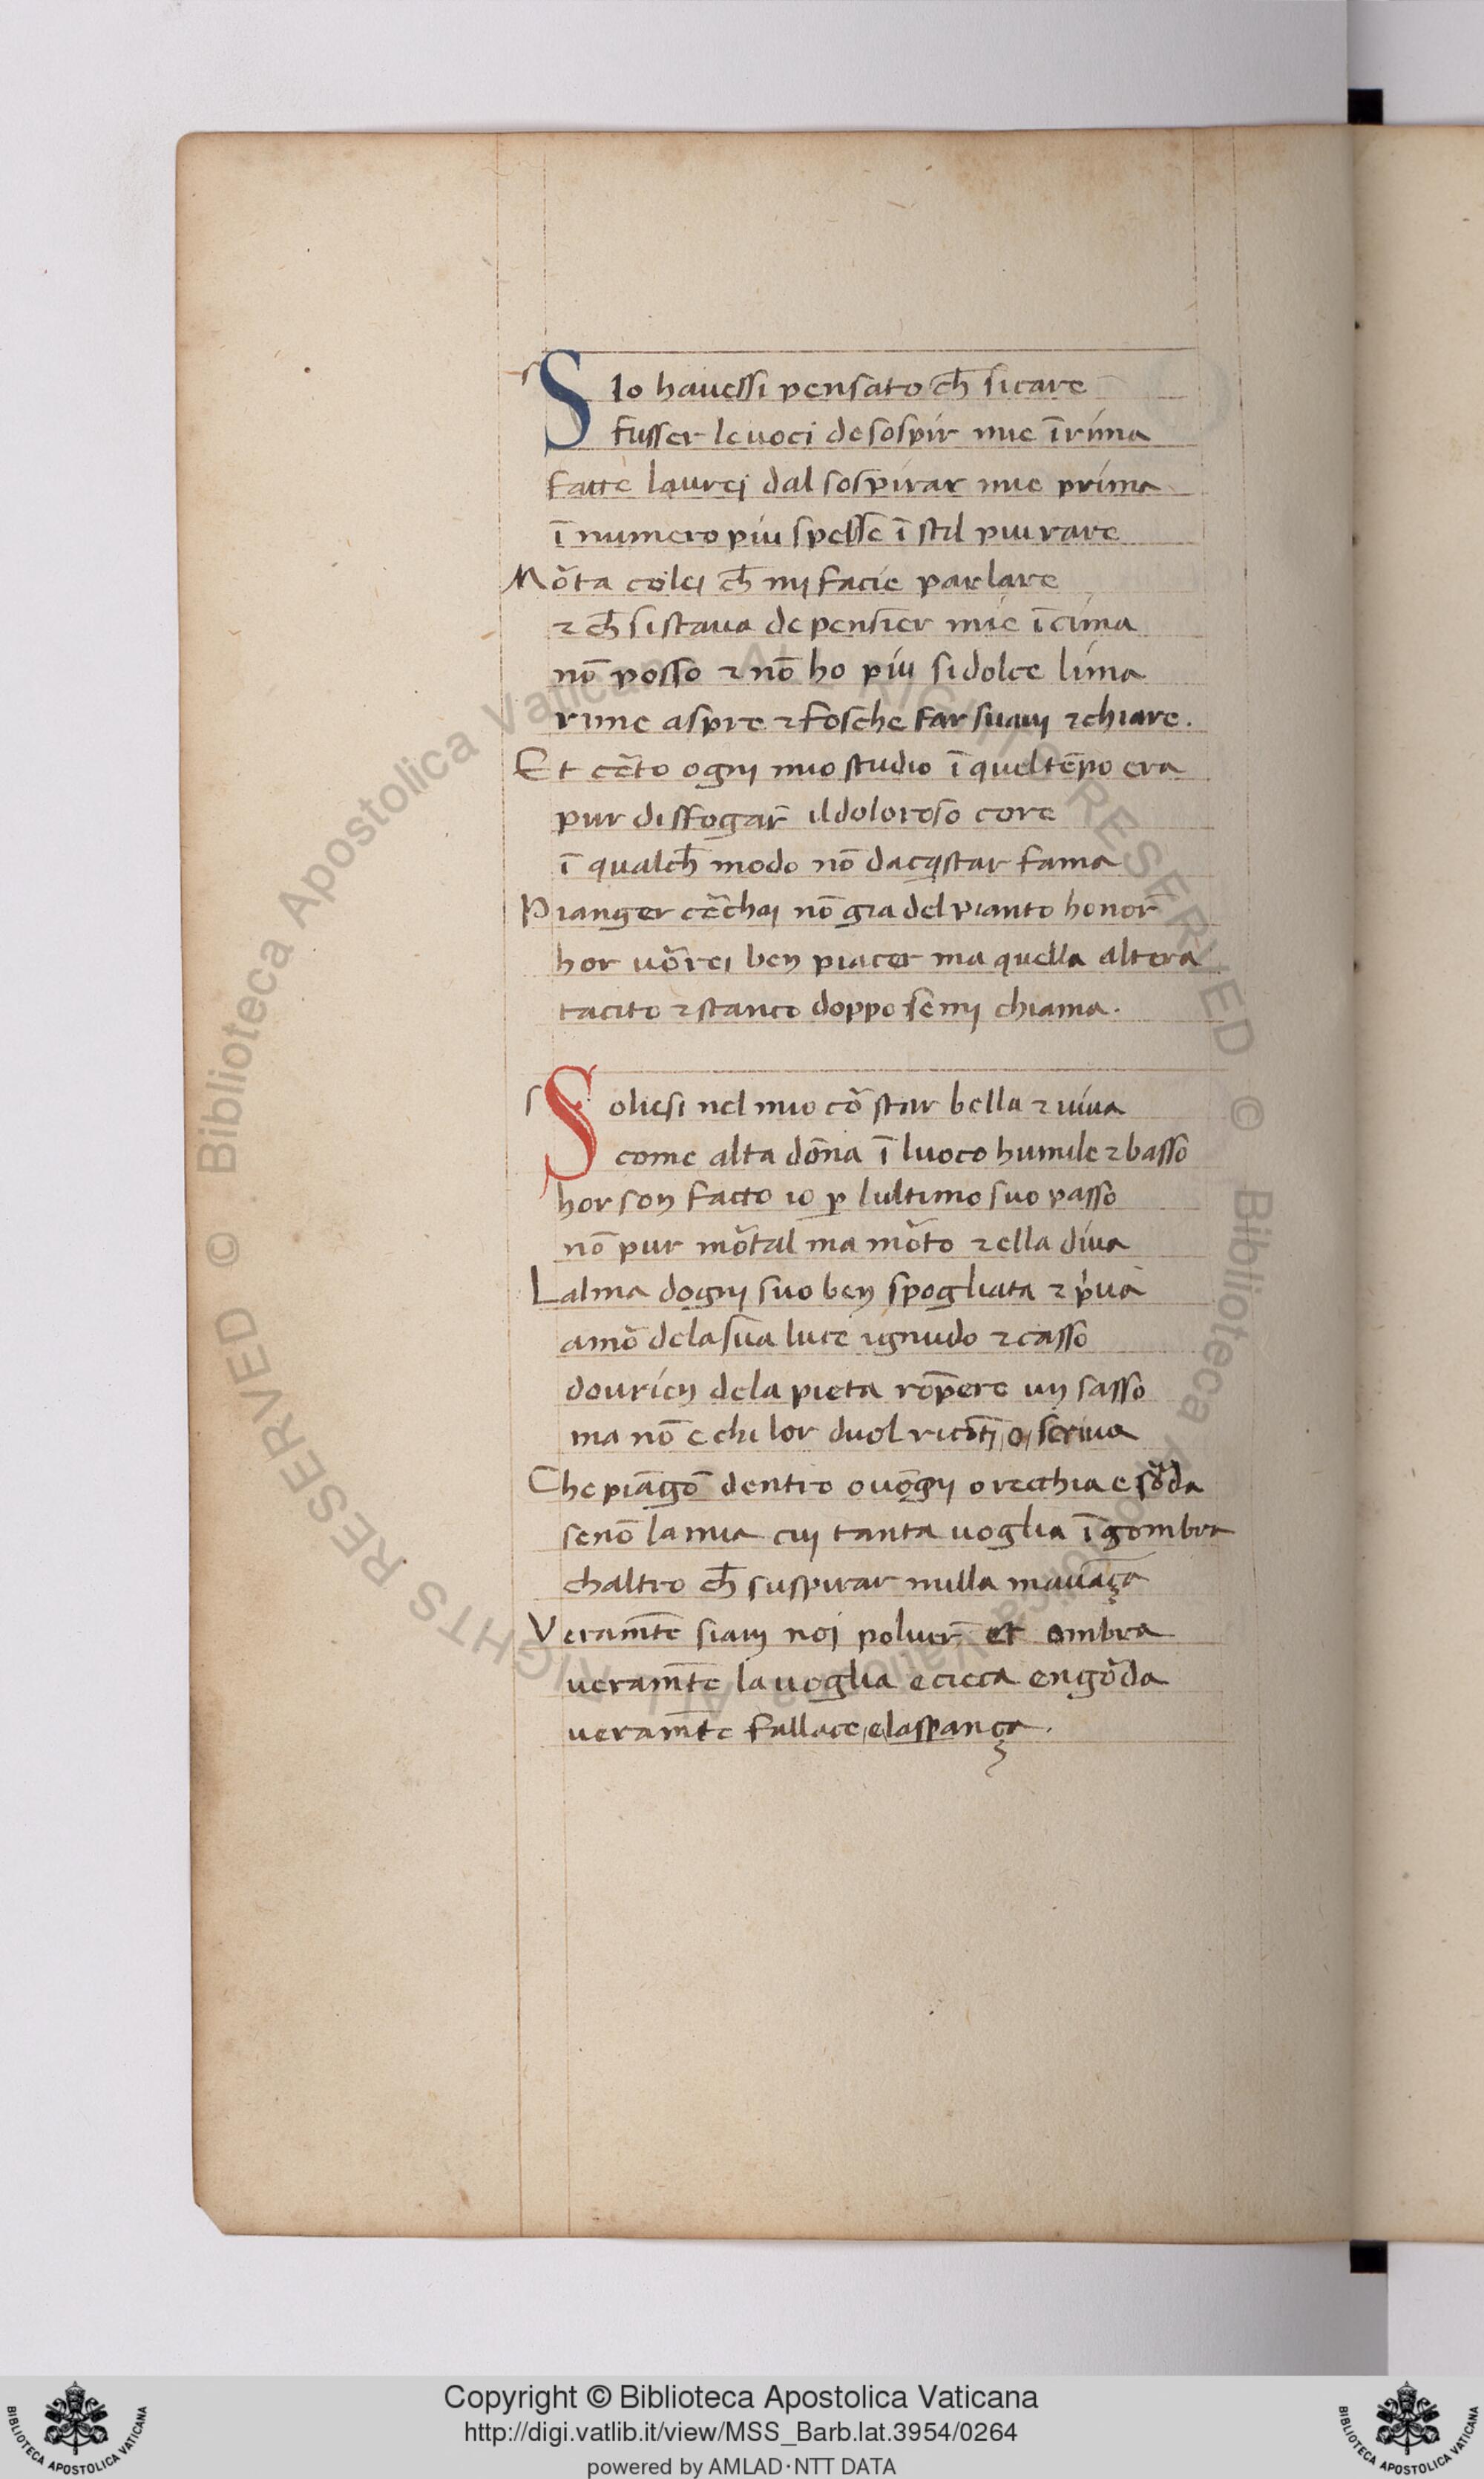 S Io hauessi pensato ch̄ sicare
fusser leuoci desospir mie ī rima
fatte laurei dal sospirar mio prima
ī numero piu spesse ī stil piu rare
Mo᷑ta colei ch̄ mi facie parlare
⁊ ch̄ sistaua de pensier mie ī cima
nō posso ⁊ nō ho piu sidolce lima
rime aspre ⁊ fosche far suaui ⁊ chiare.
Et ce᷑to ogni mio studio ī quel tēpo era
pur disfogar̄ il doloroso core
ī qualch̄ modo nō dacq̇star fama
Pianger ce᷑chai nō gia del pianto honor̄
hor uo᷑rei ben piacer ma quella altera
tacito ⁊ stanco doppo se mi chiama.
S oliesi nel mio co᷑ star bella ⁊ uiua
come alta dōna ī luoco humile ⁊ basso
hor son facto io ꝑ lultimo suo passo
nō pur mo᷑tal ma mo᷑to ⁊ ella diua
Lalma dogni suo ben spogliata ⁊ p̍ua
amo᷑ dela sua luce ignudo ⁊ casso
dourien dela pieta rōpere un sasso
ma nō e chi lor duol ricōti, o, scriua
Che piāgō dentro ouōgni orecchia e so᷑da
senō la mia cui tanta uoglia īgombra
chaltro ch̄ suspirar nulla mauāça
Veram̄te siam noi poluer̄ et ombra
ueram̄te la uoglia e cieca engo᷑da
ueram̄te fallace, e, la sꝑança.
Copyright © Biblioteca Apostolica Vaticana
http://digi.vatlib.it/view/MSS_Barb.lat.3954/0264
powered by AMLAD·NTT DATA
BIBLIOTECA APOSTOLICA VATICANA
BIBLIOTECA APOSTOLICA VATICANA
© Biblioteca Apostolica Vaticana ALL RIGHTS RESERVED © Biblioteca Apostolica Vaticana ALL RIGHTS RESERVED